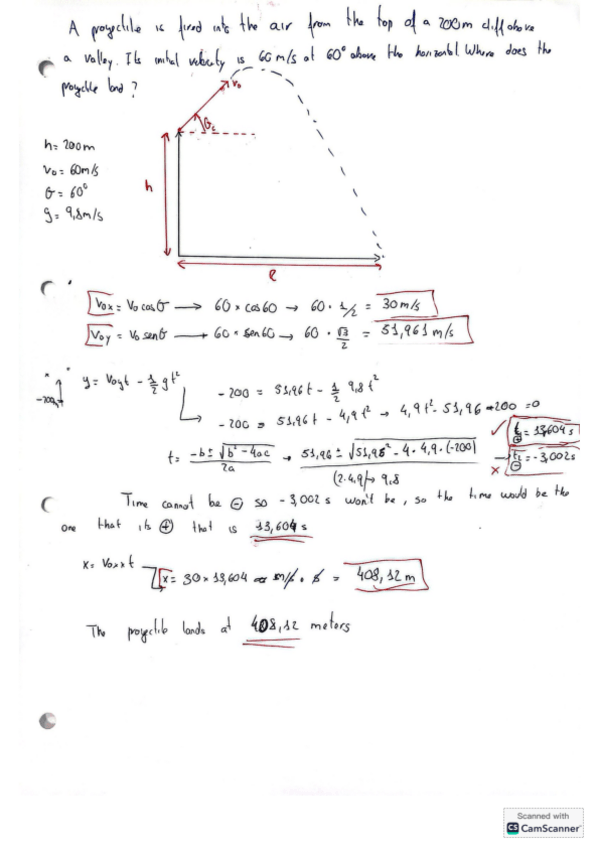 A proyectile is fired into the air from the top of a 200m cliff above
a valley. Its initial velocity is 60 m/s at 60° above the horizontal. Where does the
proyectile land?
V₀
θ
h = 200m
V₀ = 60m/s
θ = 60°
g = 9,8m/s
h
V₀x = V₀ cosθ → 60 × cos60 → 60 · 1/2 = 30 m/s
V₀y = V₀ senθ → 60 × sen60 → 60 · √3/2 = 51,961 m/s
y = V₀yt - 1/2 gt²
-200 = 51,96t - 1/2 9,8t²
-200 = 51,96t - 4,9t² → 4,9t² - 51,96 - 200 = 0
t = 13,604 s
t = -3,002 s
t = -b ± √b² - 4ac / 2a → 51,96 ± √51,96² - 4 · 4,9 · (-200) / (2·4,9) → 9,8
Time cannot be ⊖ so -3,002 s won't be, so the time would be the
one that its ⊕ that is 13,604 s
x = V₀x × t
x = 30 × 13,604 m/s · s = 408,12 m
The proyectile lands at 408,12 meters
Scanned with
CS CamScanner